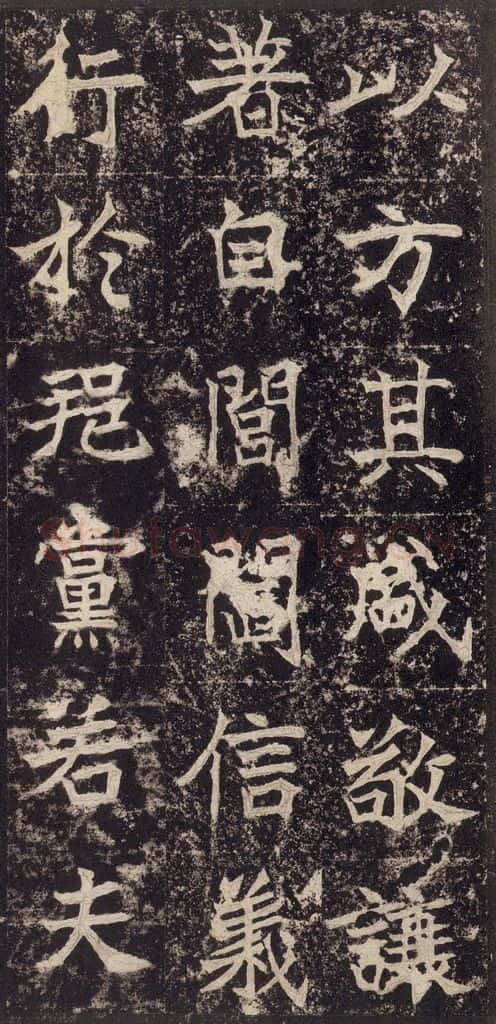 以方其盛敬謙
著自閭閻信義
行於邑黨若夫
shufawang.cn